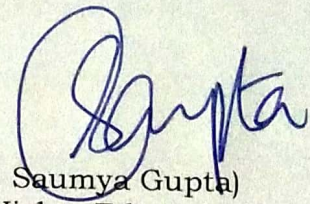 Gupta
Saumya Gupta)